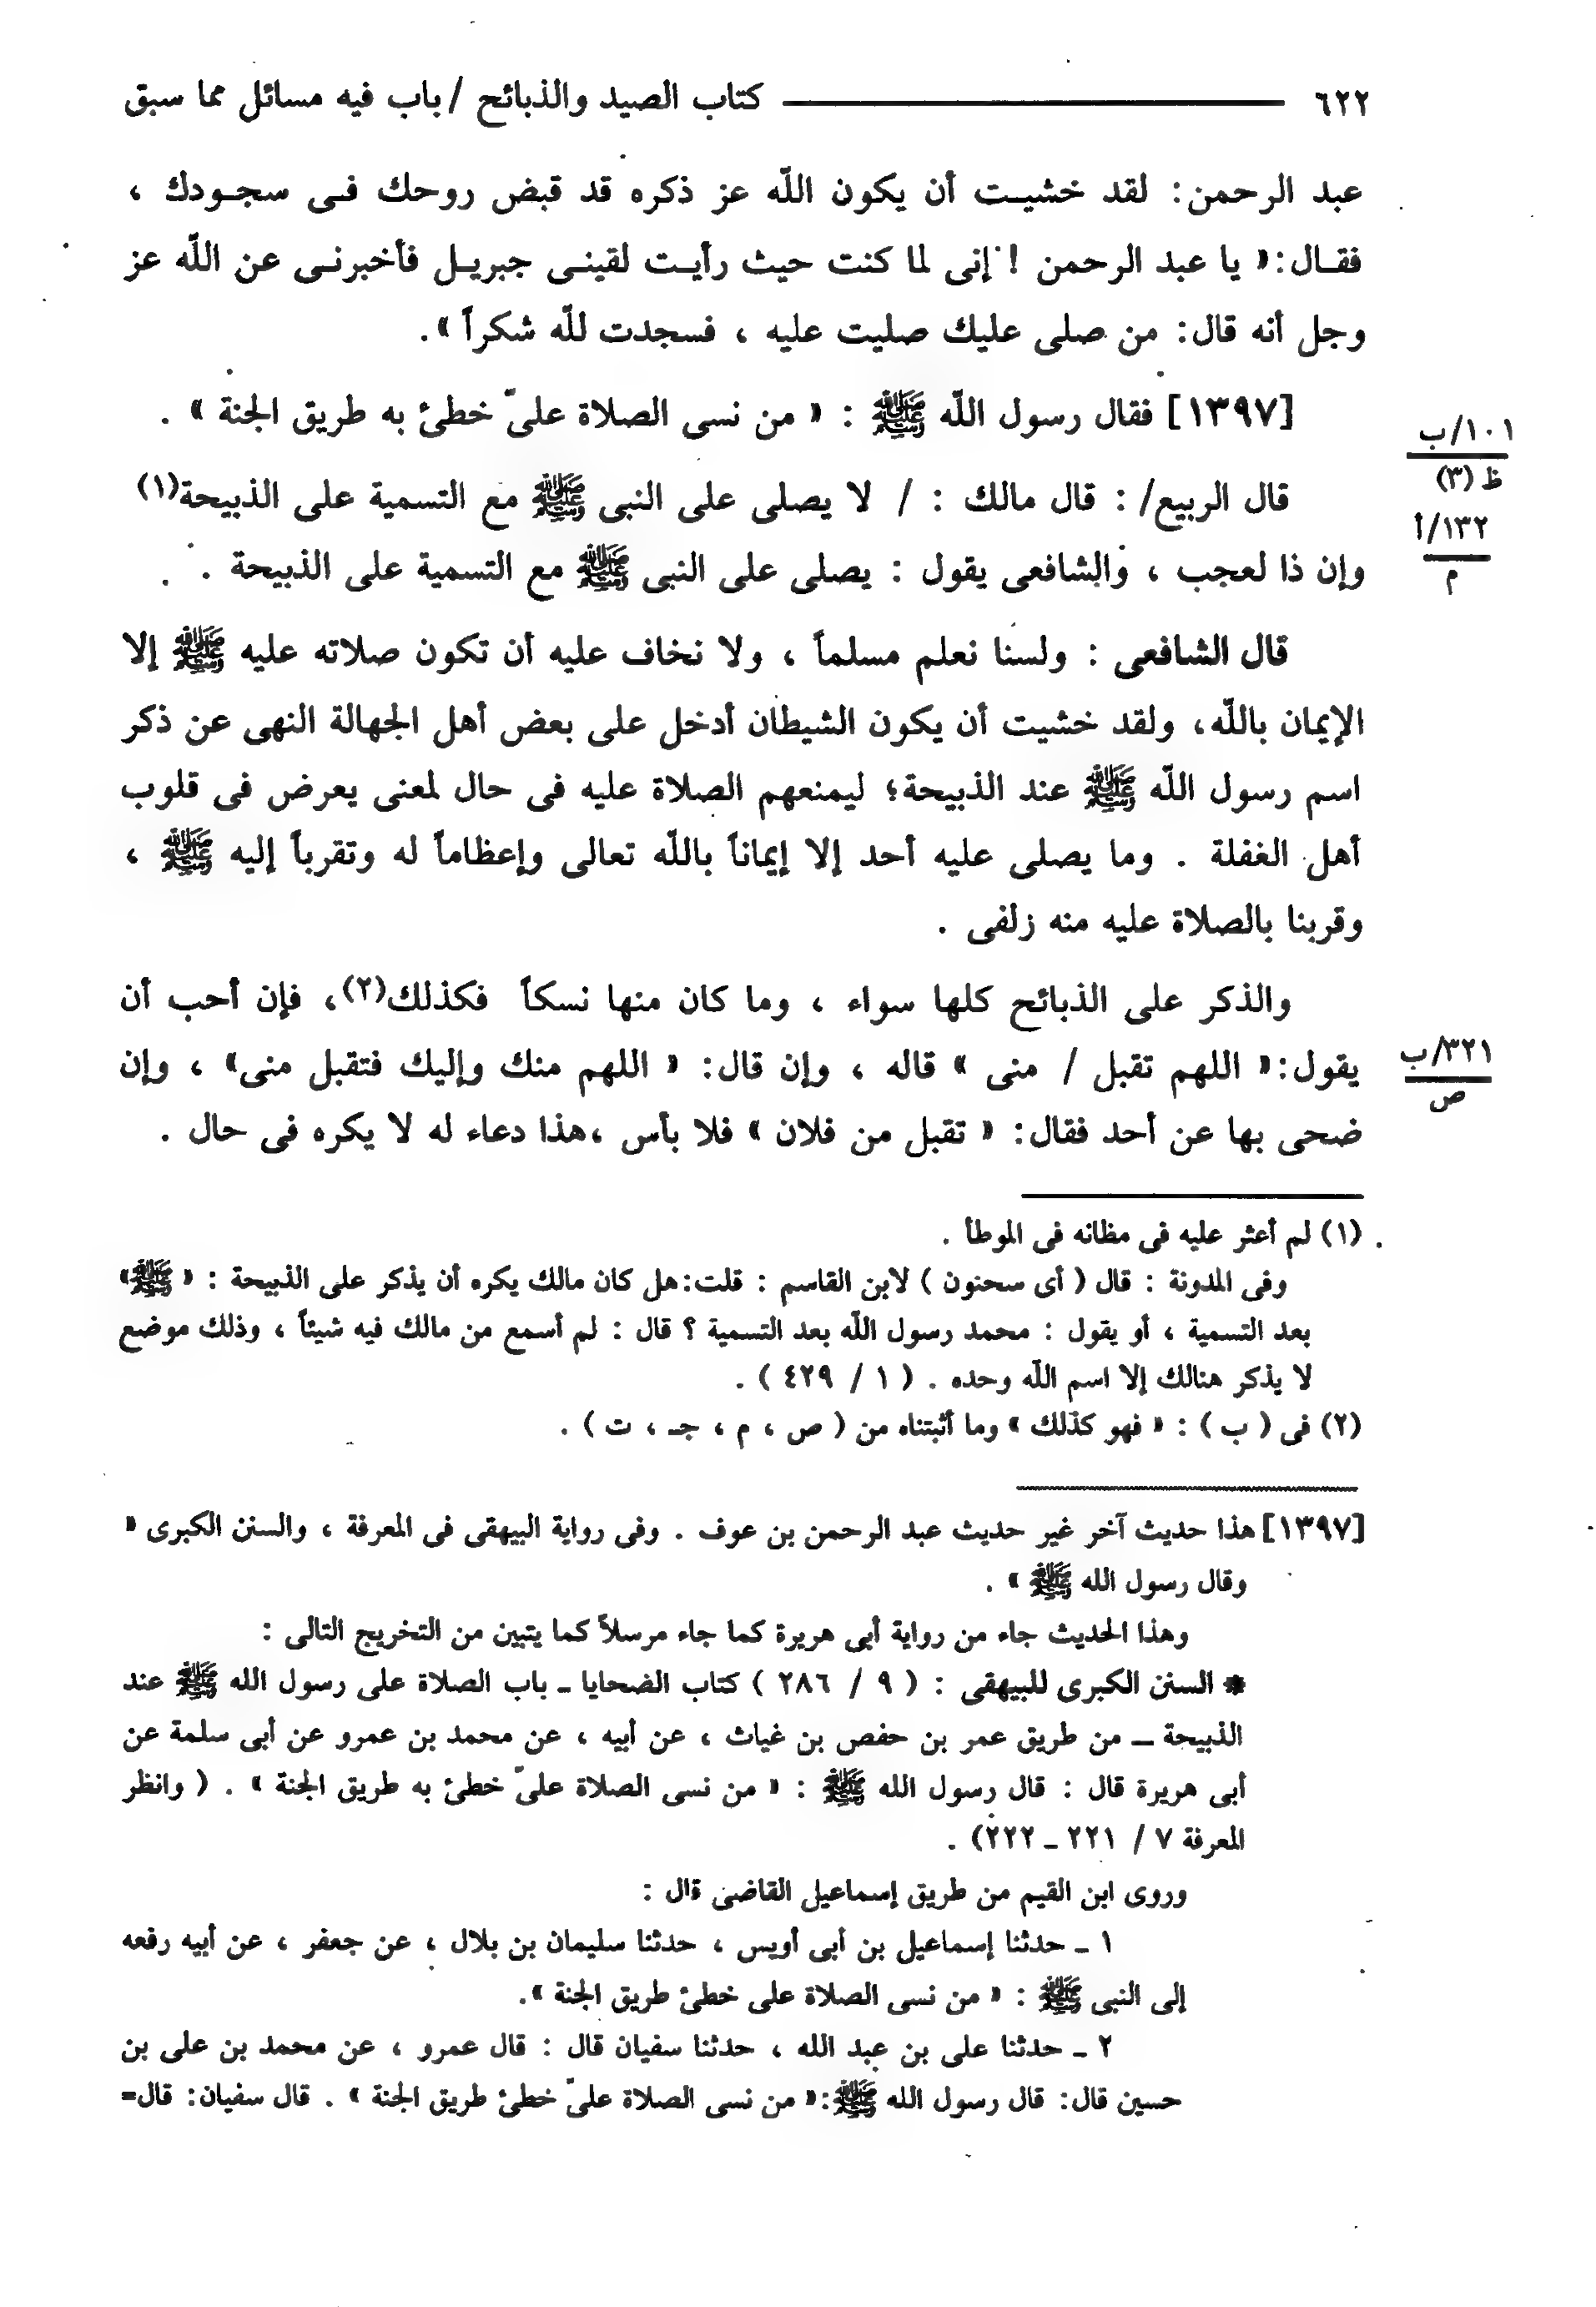 ٦٢٢ كتاب الصيد والذبائح / باب فيه مسائل مما سبق
عبد الرحمن: لقد خشيت أن يكون اللّه عز ذكره قد قبض روحك فى سجودك ،
فقال: « يا عبد الرحمن ! إنى لما كنت حيث رأيت لقينى جبريل فأخبرنى عن اللّه عز
وجل أنه قال: من صلى عليك صليت عليه ، فسجدت للّه شكراً ».
[١٣٩٧] فقال رسول اللّه ﷺ : « من نسى الصلاة علىّ خطئ به طريق الجنة » .
١٠١/ب
ظ (٣)
قال الربيع/ : قال مالك : / لا يصلى على النبى ﷺ مع التسمية على الذبيحة(١)
١٣٢/أ
م
وإن ذا لعجب ، والشافعى يقول : يصلى على النبى ﷺ مع التسمية على الذبيحة .
قال الشافعى : ولسنا نعلم مسلماً ، ولا نخاف عليه أن تكون صلاته عليه ﷺ إلا
الإيمان باللّه، ولقد خشيت أن يكون الشيطان أدخل على بعض أهل الجهالة النهى عن ذكر
اسم رسول اللّه ﷺ عند الذبيحة؛ ليمنعهم الصلاة عليه فى حال لمعنى يعرض فى قلوب
أهل الغفلة . وما يصلى عليه أحد إلا إيماناً باللّه تعالى وإعظاماً له وتقرباً إليه ﷺ ،
وقربنا بالصلاة عليه منه زلفى .
والذكر على الذبائح كلها سواء ، وما كان منها نسكاً فكذلك(٢)، فإن أحب أن
يقول: « اللهم تقبل / منى » قاله ، وإن قال: « اللهم منك وإليك فتقبل منى» ، وإن
٣٢١/ب
ص
ضحى بها عن أحد فقال: « تقبل من فلان » فلا بأس ،هذا دعاء له لا يكره فى حال .
(١) لم أعثر عليه فى مظانه فى الموطأ .
وفى المدونة : قال ( أى سحنون ) لابن القاسم : قلت: هل كان مالك يكره أن يذكر على الذبيحة : « ﷺ»
بعد التسمية ، أو يقول : محمد رسول اللّه بعد التسمية ؟ قال : لم أسمع من مالك فيه شيئاً ، وذلك موضع
لا يذكر هنالك إلا اسم اللّه وحده . ( ١ / ٤٢٩ ) .
(٢) فى ( ب ) : « فهو كذلك » وما أثبتناه من ( ص ، م ، جـ ، ت ) .
[١٣٩٧] هذا حديث آخر غير حديث عبد الرحمن بن عوف . وفى رواية البيهقى فى المعرفة ، والسنن الكبرى «
وقال رسول الله ﷺ » .
وهذا الحديث جاء من رواية أبى هريرة كما جاء مرسلاً كما يتبين من التخريج التالى :
* السنن الكبرى للبيهقى : ( ٩ / ٢٨٦ ) كتاب الضحايا ـ باب الصلاة على رسول الله ﷺ عند
الذبيحة ــ من طريق عمر بن حفص بن غياث ، عن أبيه ، عن محمد بن عمرو عن أبى سلمة عن
أبى هريرة قال : قال رسول الله ﷺ : « من نسى الصلاة علىّ خطئ به طريق الجنة » . ( وانظر
المعرفة ٧ / ٢٢١ ـ ٢٢٢) .
وروى ابن القيم من طريق إسماعيل القاضى قال :
١ ـ حدثنا إسماعيل بن أبى أويس ، حدثنا سليمان بن بلال ، عن جعفر ، عن أبيه رفعه
إلى النبى ﷺ : « من نسى الصلاة على خطئ طريق الجنة ».
٢ ـ حدثنا على بن عبد الله ، حدثنا سفيان قال : قال عمرو ، عن محمد بن على بن
حسين قال: قال رسول الله ﷺ: « من نسى الصلاة علىّ خطئ طريق الجنة » . قال سفيان: قال=